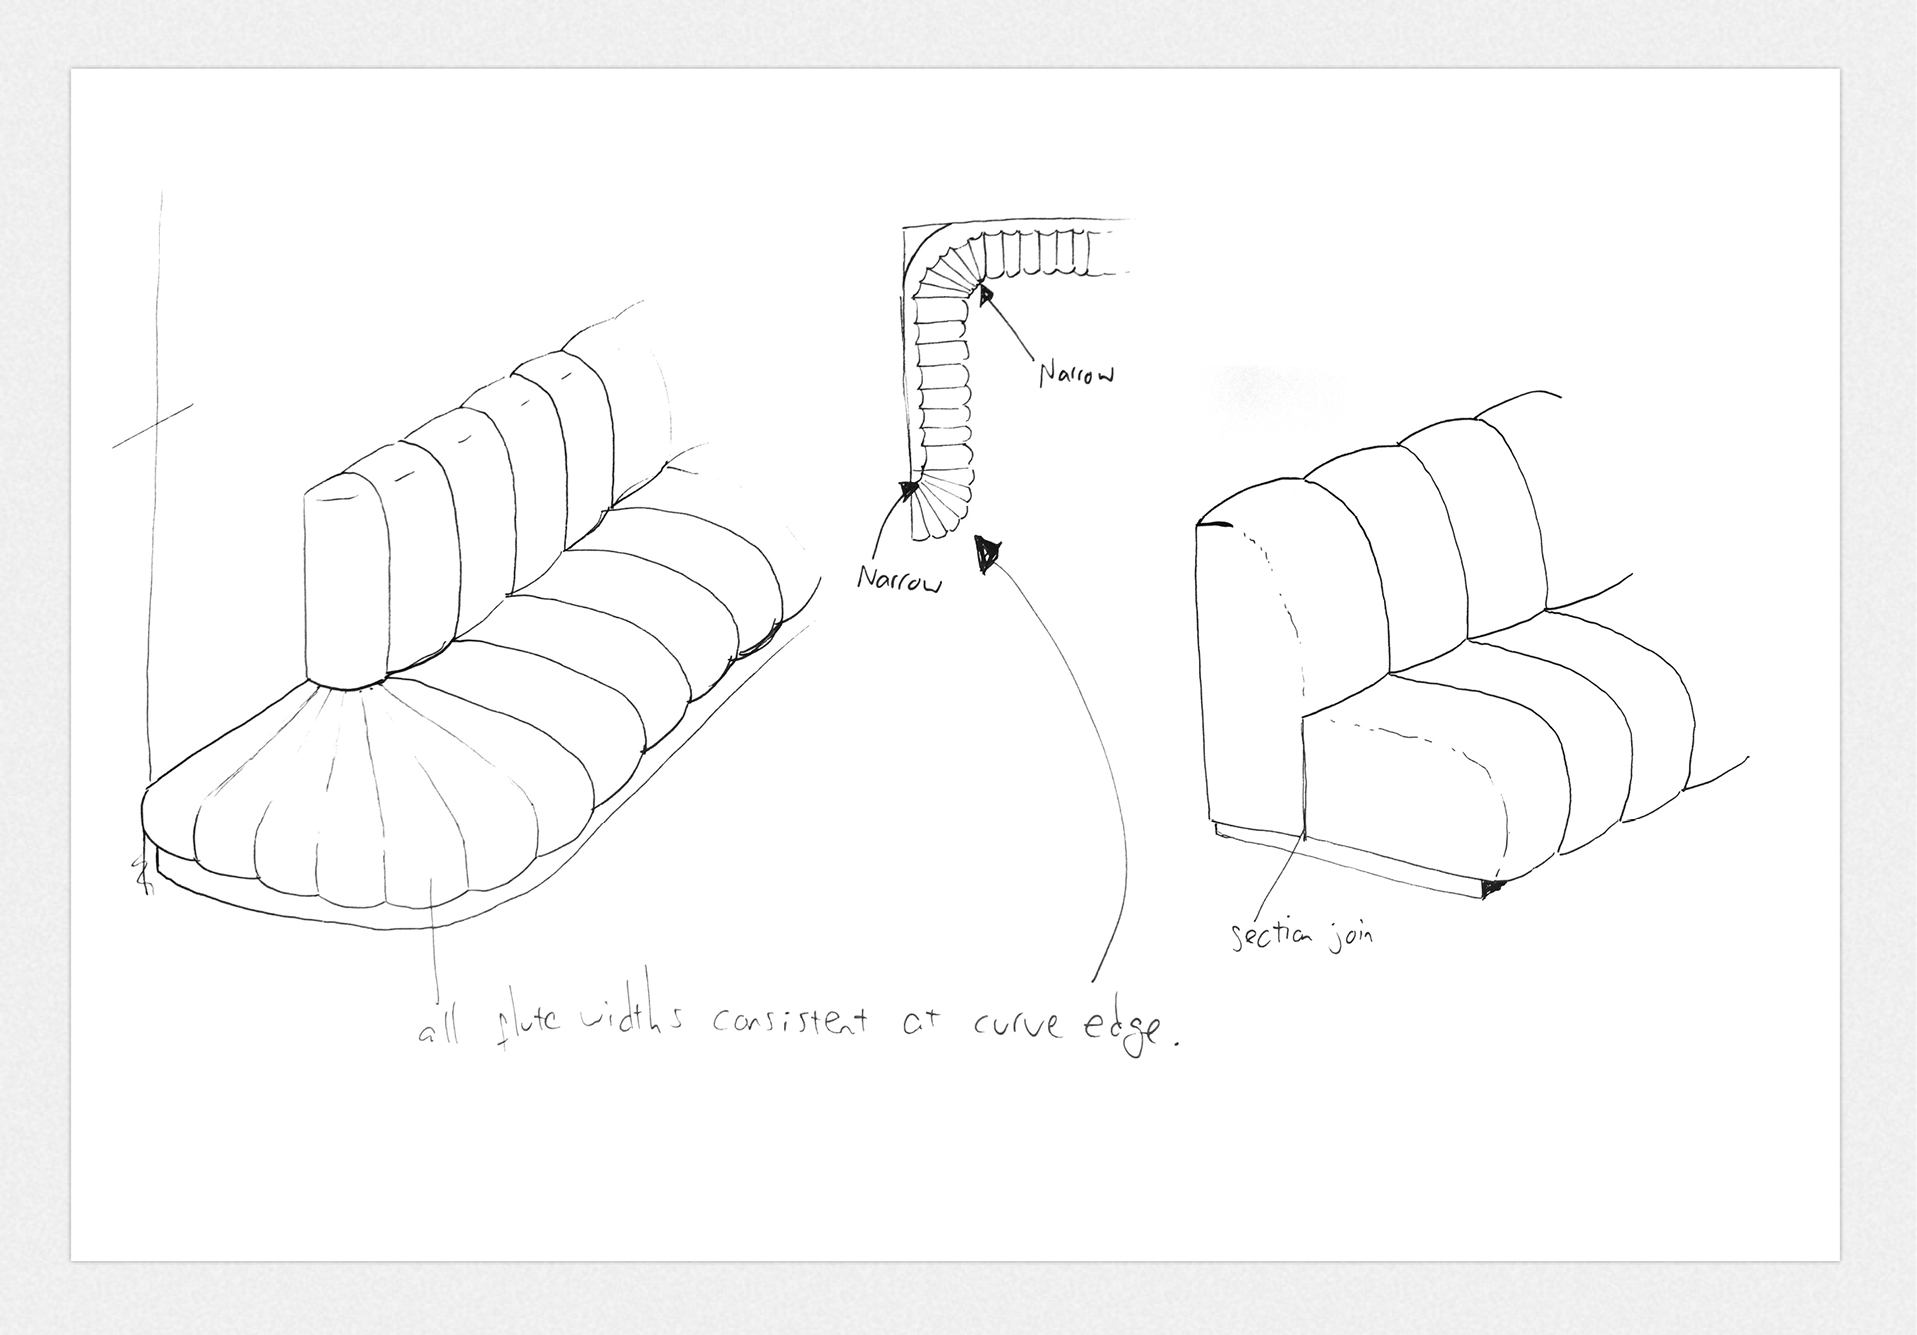 Narrow
Narrow
section join
all flute widths consistent at curve edge.